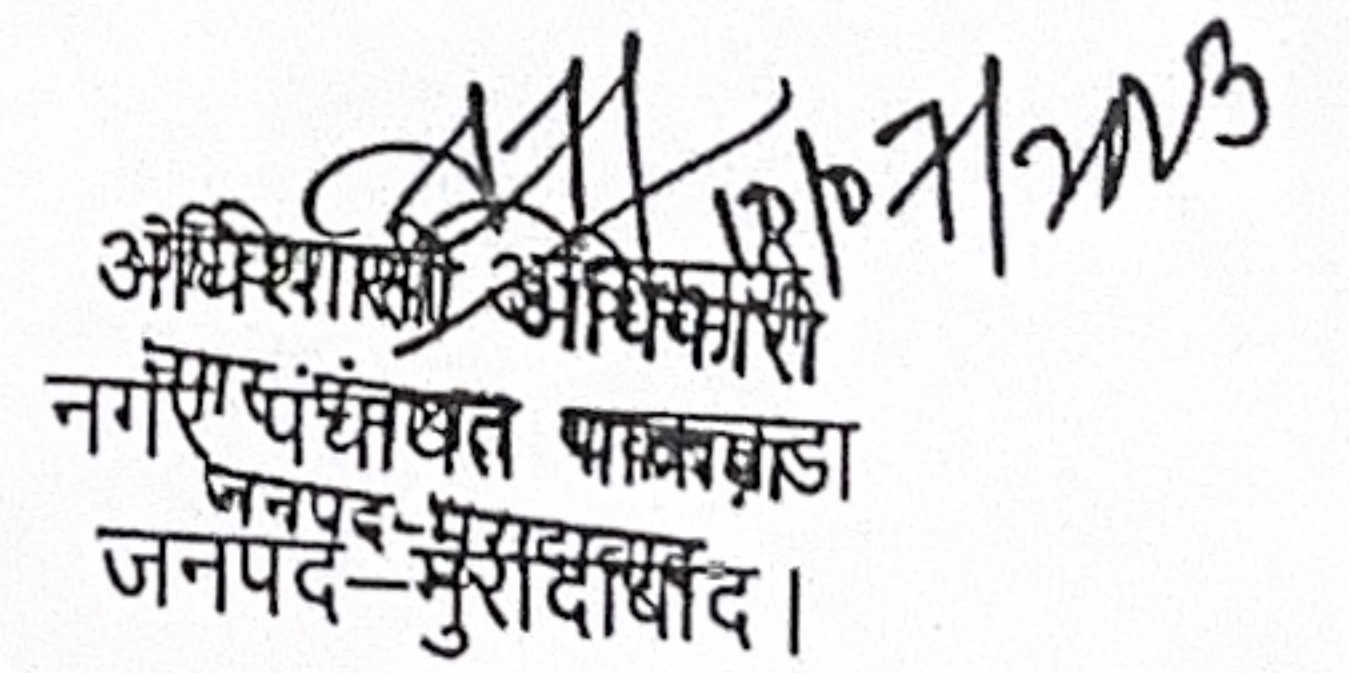 12/07/2023
अधिशासी अधिकारी
नगर पंचायत पाकबाडा
जनपद-मुरादाबाद
जनपद-मुरादाबाद।